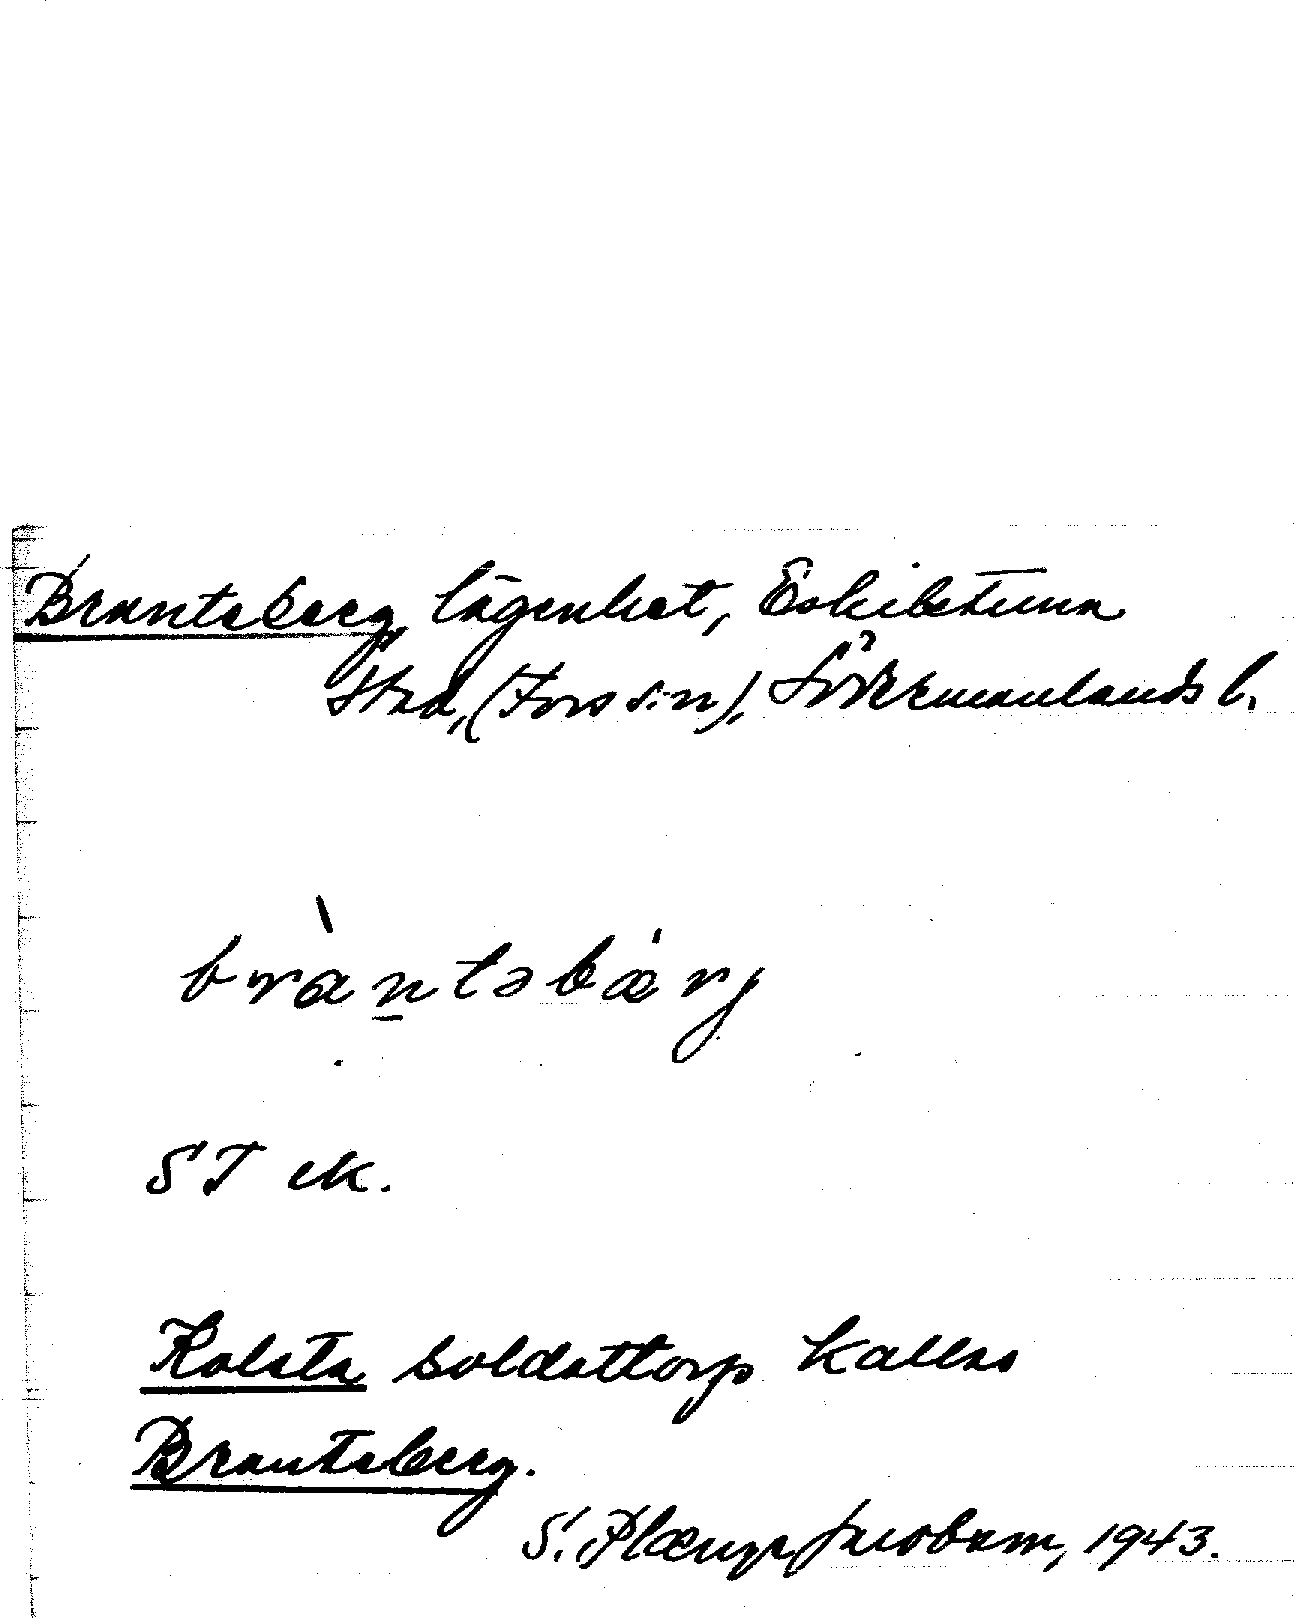 Branteberg, lägenhet, Eskilstuna
stad, (Fors s:n), Södermanlands l.
bràntəbærj
ST ek.
Kolsta soldattorp kallas
Branteberg.
S. Plænge Jacobson, 1943.